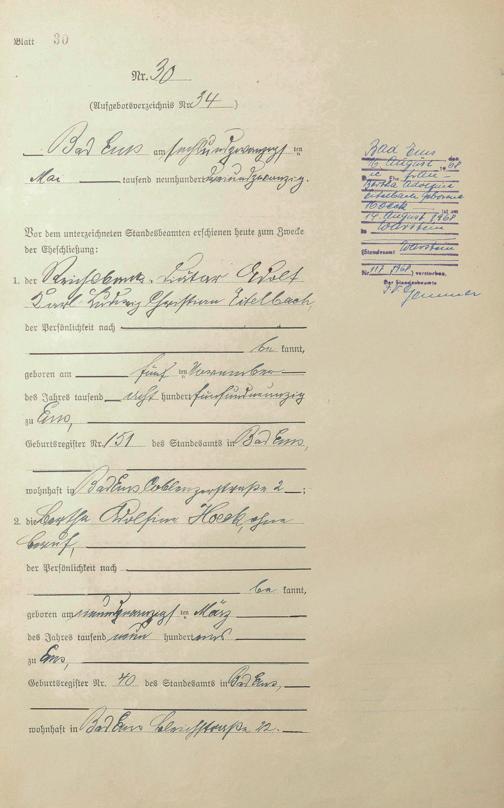 Blatt 30
Nr. 30
(Aufgebotsverzeichnis Nr. 34)
Bad Ems am sechsundzwanzigsten
Mai tausend neunhundert
Vor dem unterzeichneten Standesbeamten erschienen heute zum Zwecke
der Eheschließung:
1. der Reichsbank- Adolf
Karl Ludwig Christian Eitelbach
der Persönlichkeit nach
be kannt,
geboren am fünften November
des Jahres tausend acht hundert fünfundneunzig
zu Ems,
Geburtsregister Nr. 151 des Standesamts in Bad Ems,
wohnhaft in Bad Ems Coblenzerstraße 2;
2. die Bertha Adolfine Hoeck, ohne
Beruf,
der Persönlichkeit nach
be kannt,
geboren am neunundzwanzigsten März
des Jahres tausend neun hundert eins
zu Ems,
Geburtsregister Nr. 40 des Standesamts in Bad Ems,
wohnhaft in Bad Ems Bleichstraße 22.
Bad Ems, den
August 1968
Die Ehefrau
Bertha Adolfine
Eitelbach geborene
Hoeck ist am
14. August 1968
in
(Standesamt
Nr. 117/1968) verstorben.
Der Standesbeamte